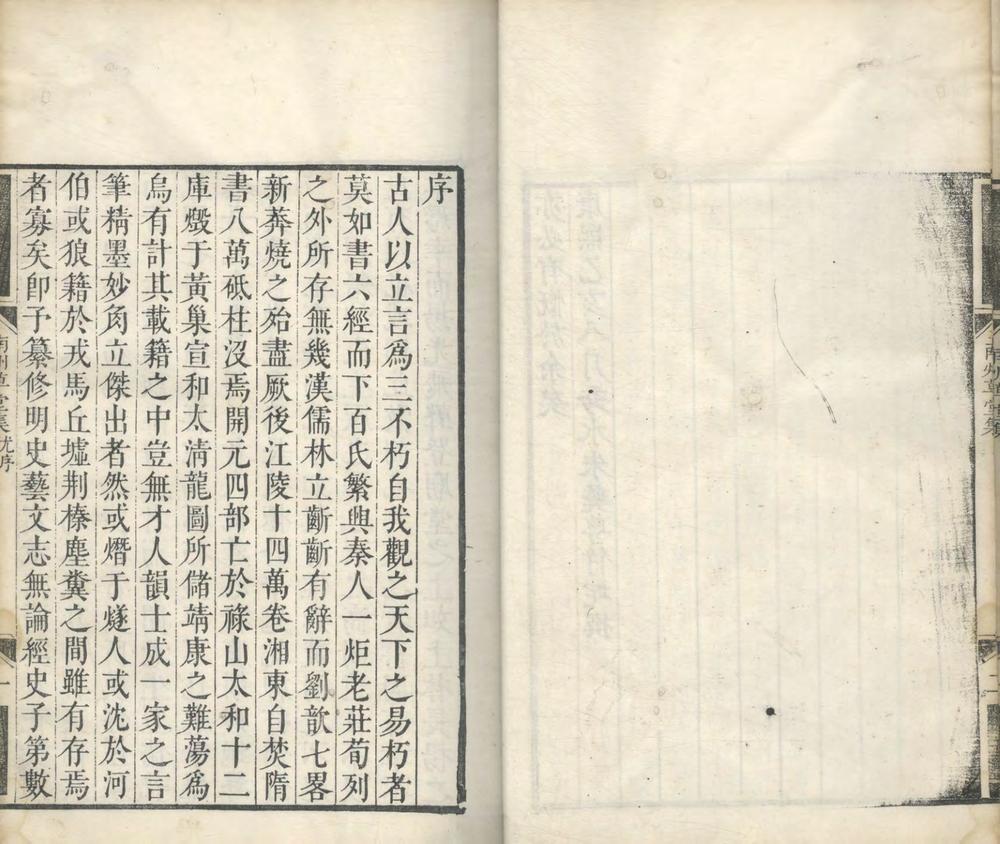 南州草堂集
二
序
古人以立言爲三不朽自我觀之天下之易朽者
莫如書六經而下百氏繁興秦人一炬老莊荀列
之外所存無幾漢儒林立齗齗有辭而劉歆七畧
新莽燒之殆盡厥後江陵十四萬卷湘東自焚隋
書八萬砥柱沒焉開元四部亡於祿山太和十二
庫燬于黃巢宣和太淸龍圖所儲靖康之難蕩爲
烏有計其載籍之中豈無才人韻士成一家之言
筆精墨妙角立傑出者然或熸于燧人或沈於河
伯或狼籍於戎馬丘墟荆榛塵糞之間雖有存焉
者寡矣卽予纂修明史藝文志無論經史子第數
南州草堂集尤序
一